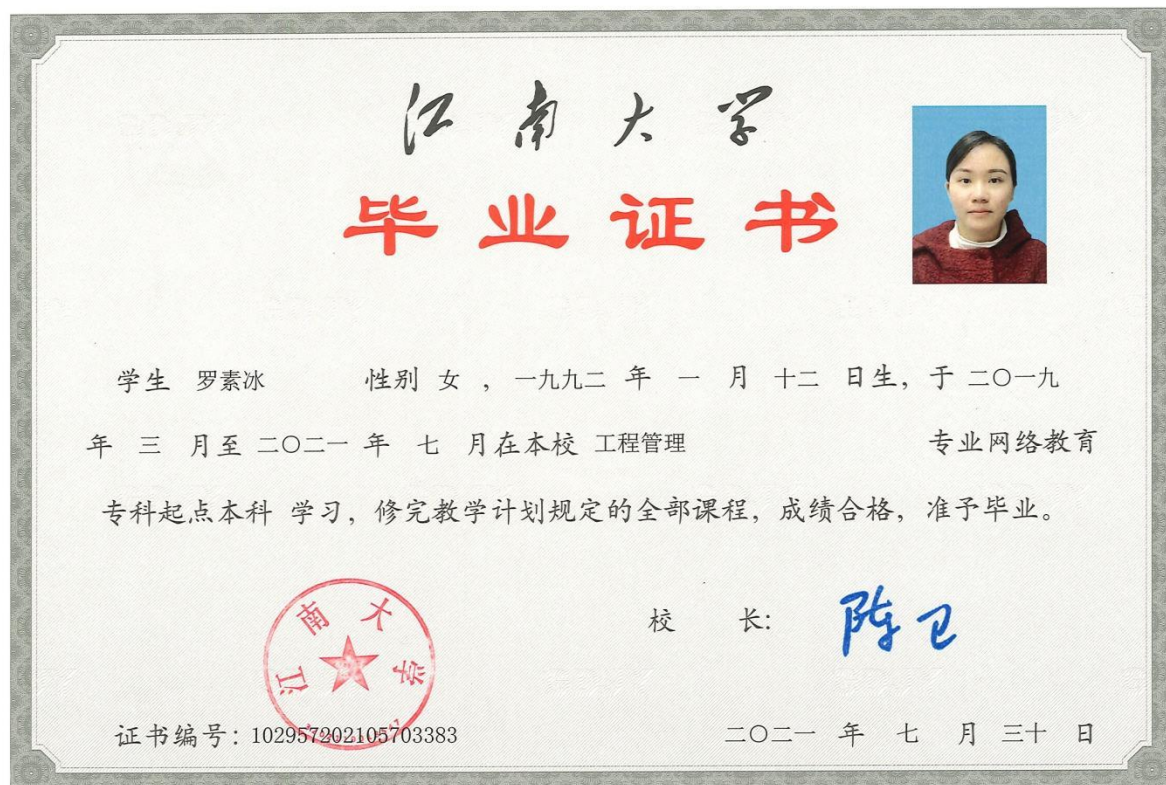 江南大学
毕业证书
学生 罗素冰 性别 女 ，一九九二 年 一 月 十二 日生，于 二〇一九
年 三 月至 二〇二一 年 七 月在本校 工程管理 专业网络教育
专科起点本科 学习，修完教学计划规定的全部课程，成绩合格，准予毕业。
江南大学
校 长： 陈卫
证书编号：102957202105703383
二〇二一 年 七 月 三十 日